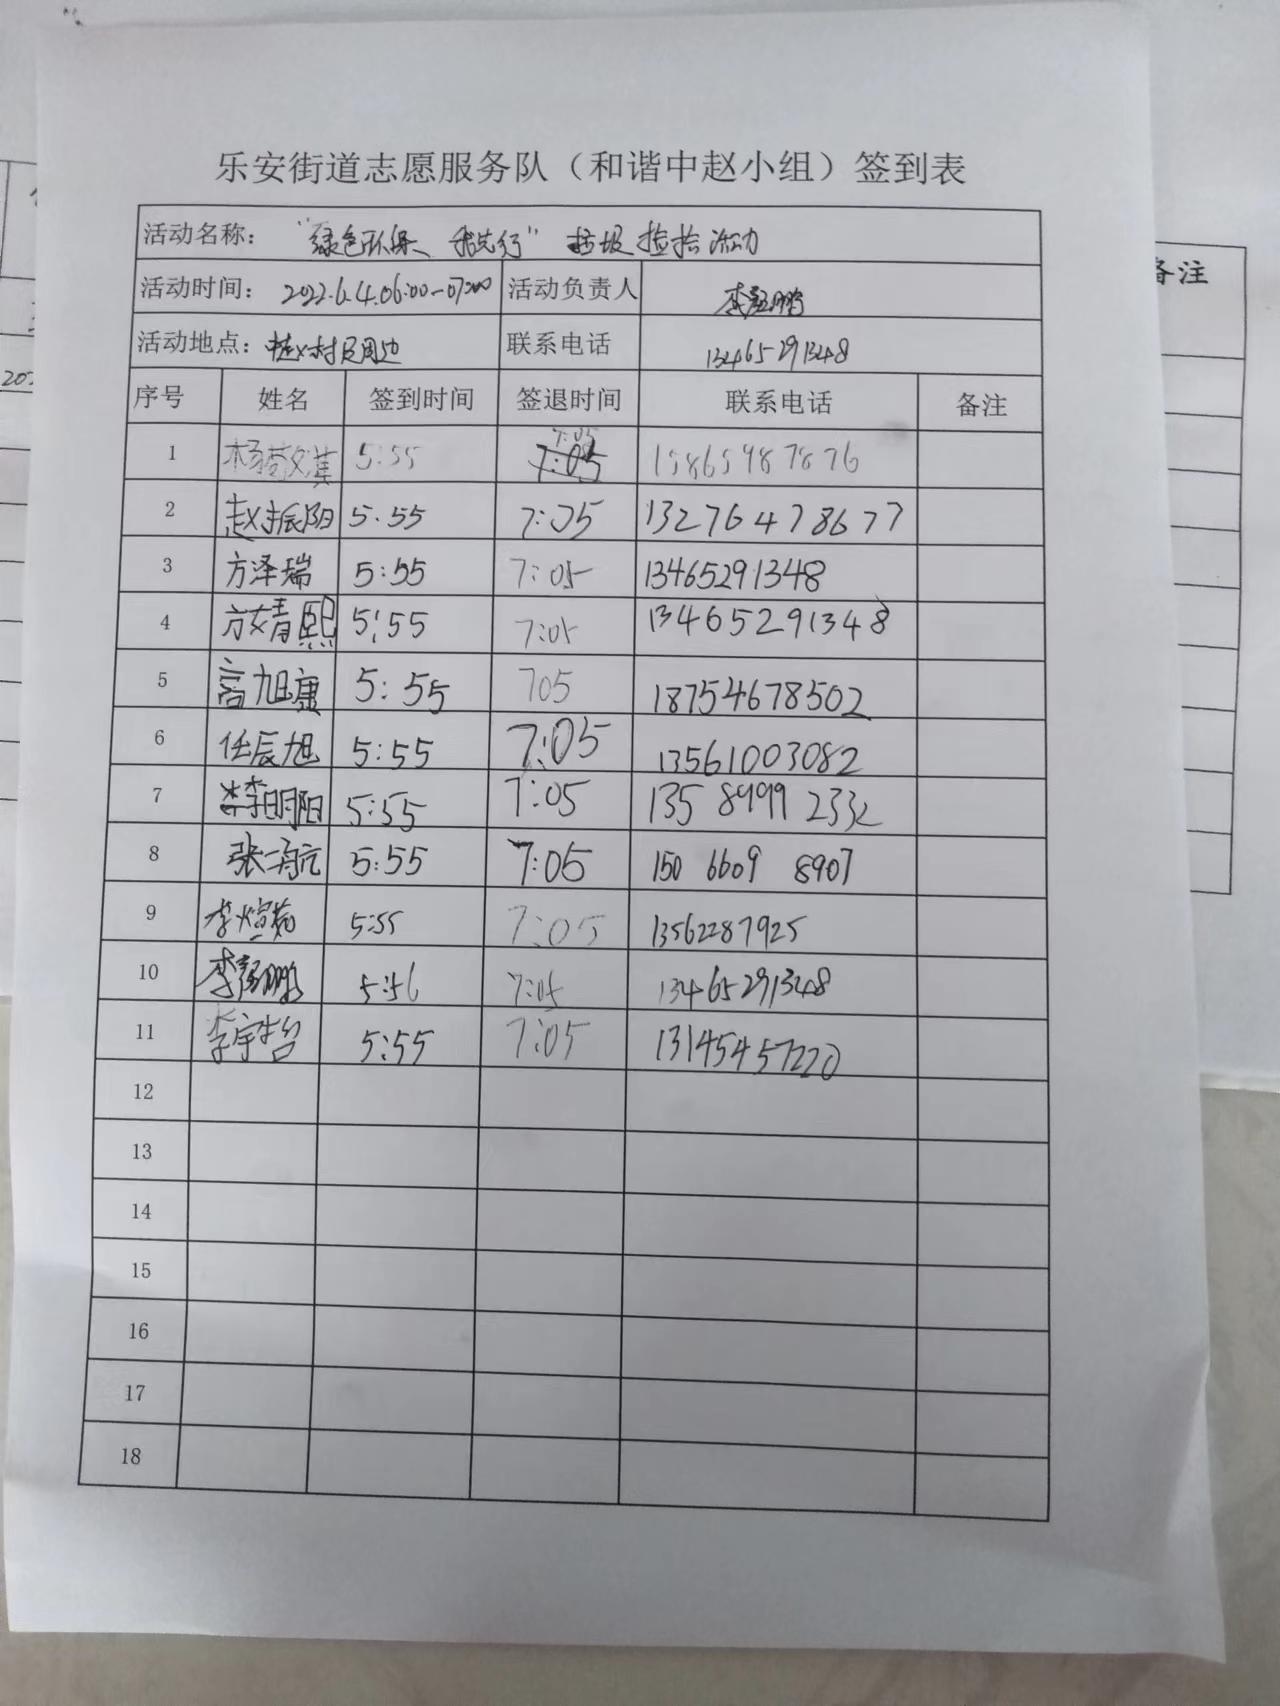 乐安街道志愿服务队（和谐中赵小组）签到表
活动名称： "绿色环保、我先行" 垃圾捡拾活动
活动时间： 2022.6.4.06:00-07:00 活动负责人
活动地点： 村及周边 联系电话 13465291348
序号 姓名 签到时间 签退时间 联系电话 备注
1 杨敬淇 5:55 7:05 7:05 15865987876
2 赵振阳 5:55 7:05 13276478677
3 方泽瑞 5:55 7:05 13465291348
4 5:55 7:05 13465291348
5 高旭康 5:55 705 18754678502
6 任辰旭 5:55 7:05 13561003082
7 李明阳 5:55 7:05 135 8999 2332
8 张一航 5:55 7:05 150 6609 8907
9 5:55 7:05 13562287925
10 5:56 7:05 13465291348
11 5:55 7:05 13145457220
12
13
14
15
16
17
18
备注